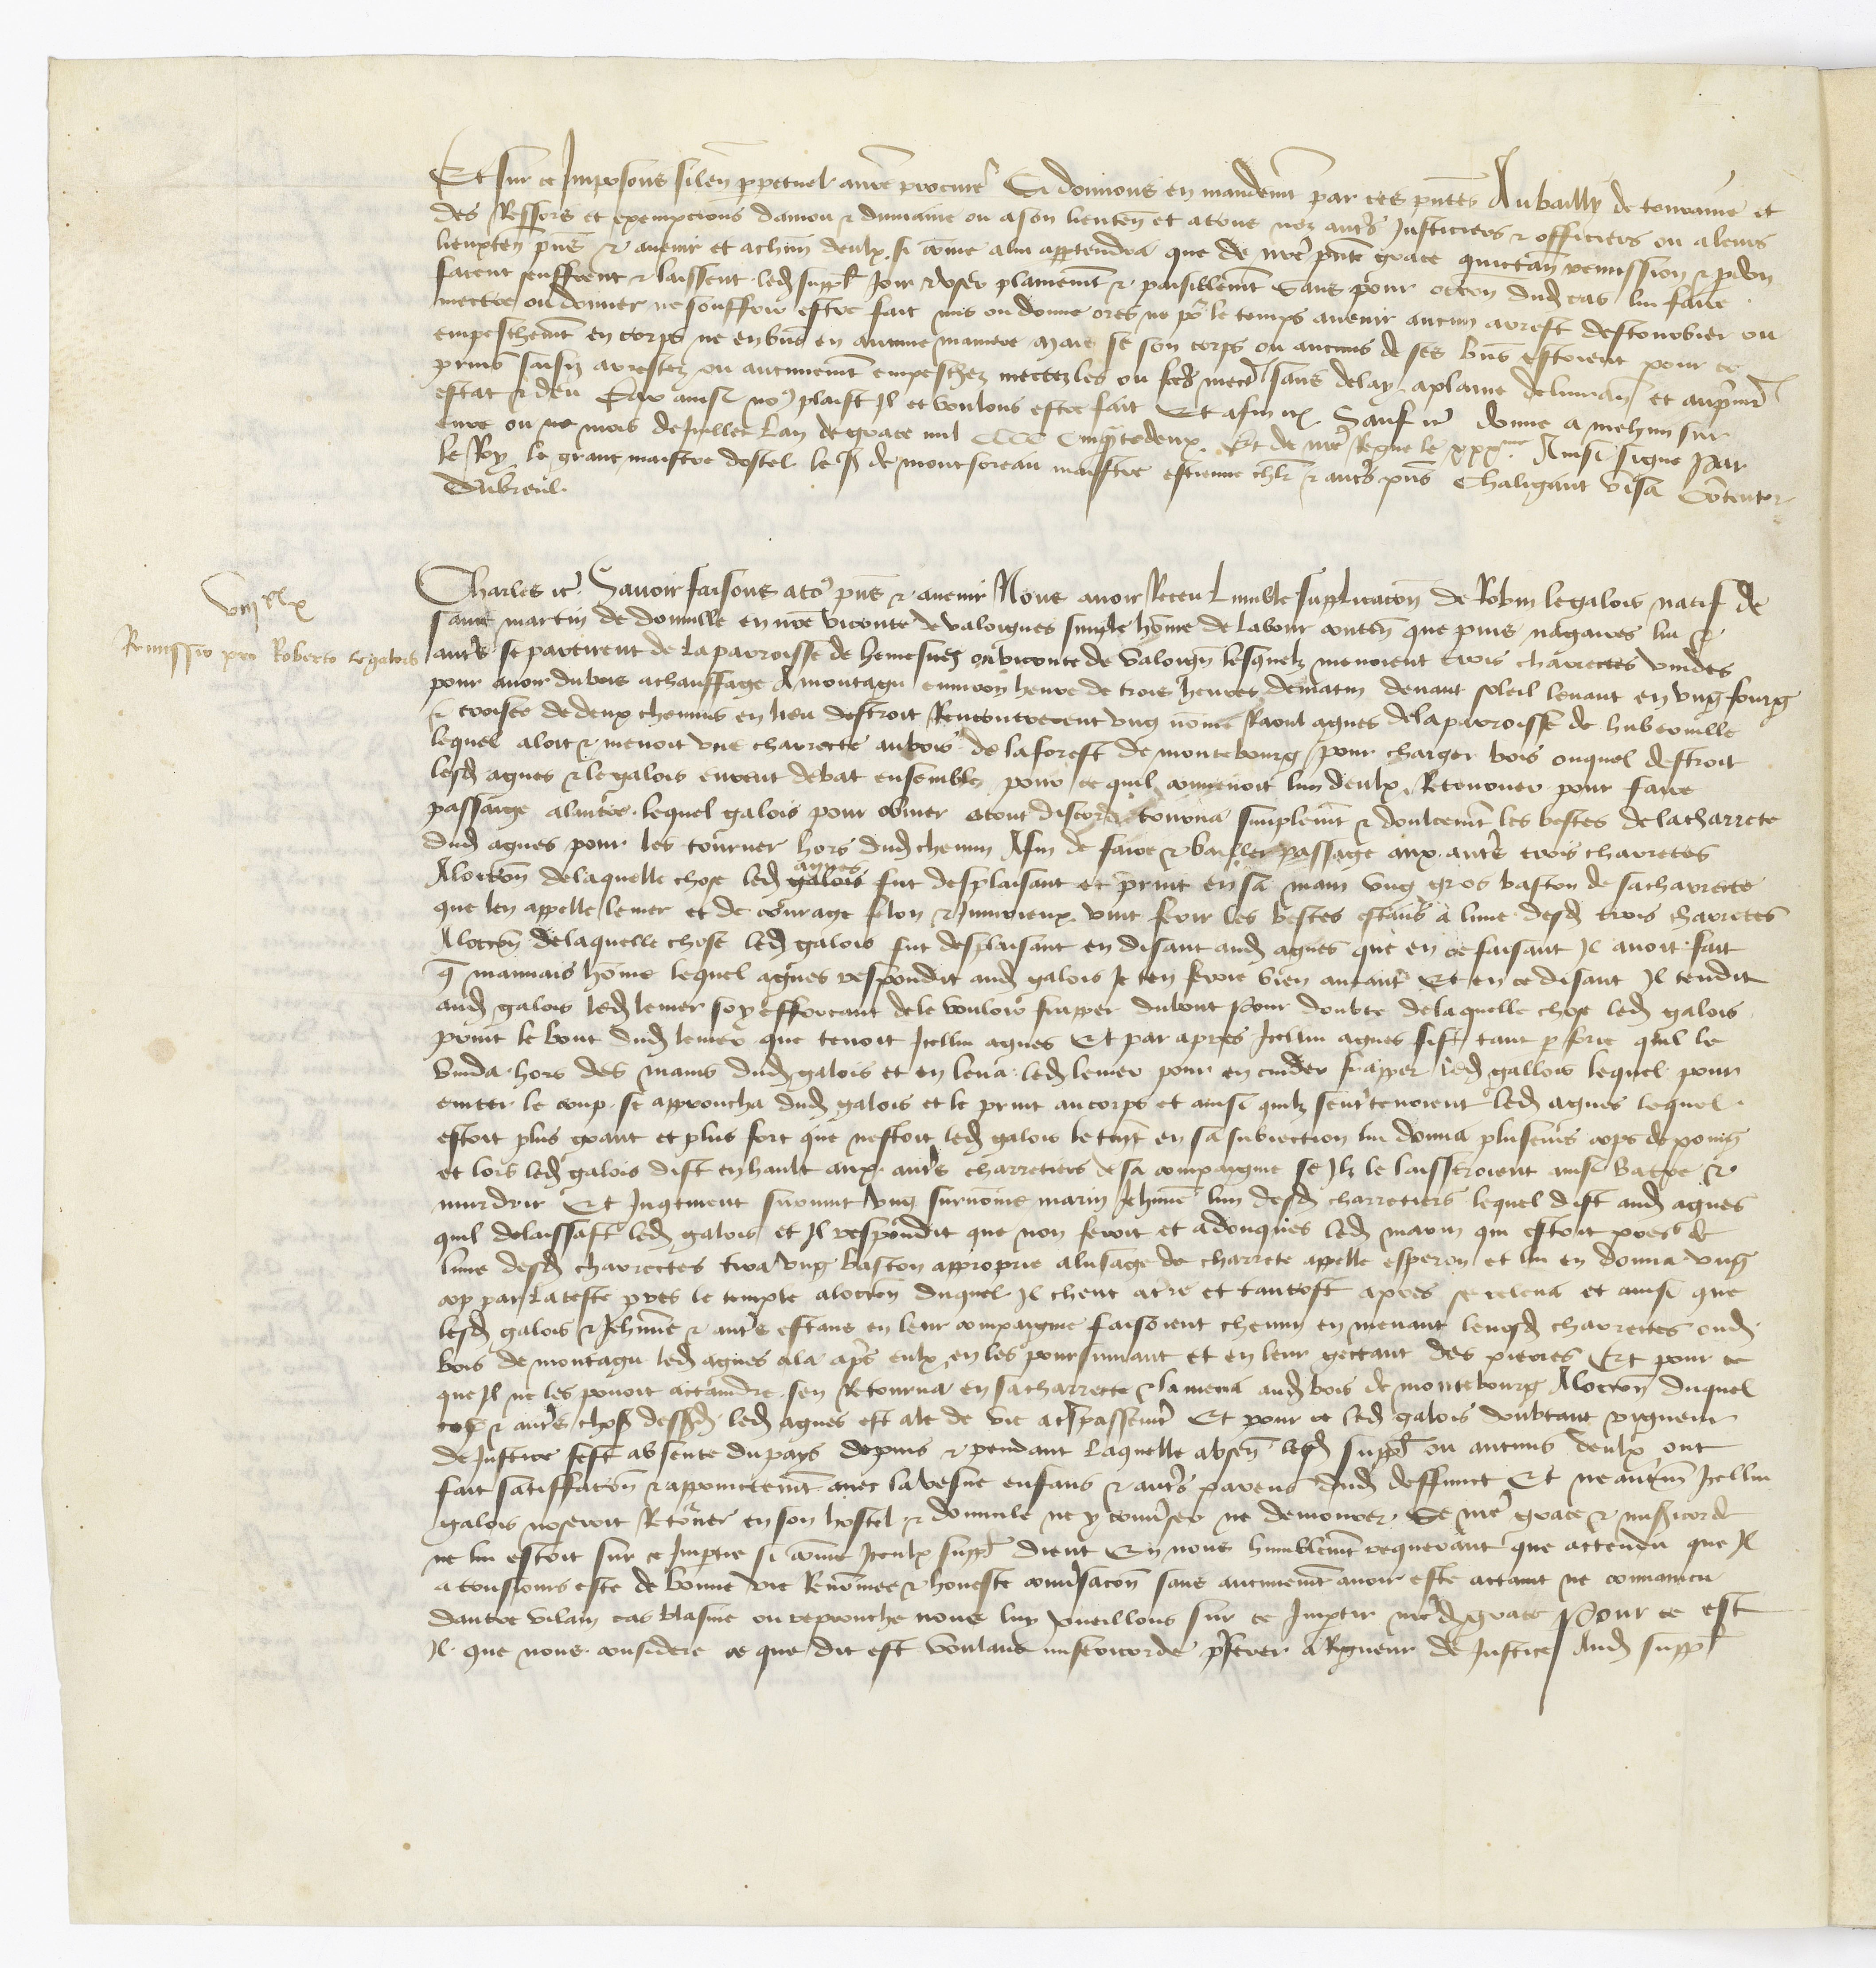 Et sur ce Imposons silen perpetuel a nre procur Si donnons en mandemt par ces pntes Au bailly de touraine et
des Ressors et exempcions daniou & du maine ou a son lieuten et a tous noz autrs Justiciers & officiers ou a leurs
lieuxten pns & avenir et a chun deulx si come a lui appartendra que de nre pnte grace quictan remission & pardon
facent seuffrent & laissent led suppl Joir & user plainemt & paisiblemt sans pour occon dud cas lui faire
mectre ou donner ne souffrir estre fait mis ou donne ores ne por le temps avenir aucun arrest destourbier ou
empeschemt en corps ne en biens en aucune maniere Mais se son corps ou aucuns de ses biens estoient pour ce
prins saisiz arrestez ou aucunemt empeschez mectez les ou fcs mectr sans delay a plaine delivran et au premr
estat & deu Car ainsi nous plaist Il et voulons estre fait Et afin etc Sauf etc donne a mehun sur
evre ou mois de Juillet Lan de grace mil CCCC Cinqte deux Et de nre Regne le xxxme Ainsi signe Par
le Roy le grant maistre dostel le sr de montsoreau maistre estienne chlr & autrs pns Chaligaut visa Contentor
Dubreul

viijxx x
Remissio pro Roberto le galois
Charles etc Savoir faisons a tos pns & avenir Nous avoir Receu Lumble supplicacon de Robin le galois natif de
saint martin de domville en nre viconte de valoignes simple home de labour conten que puis nagaires lui &
autrs se partirent de la parroisse de hemesvez ou viconte de valoign lesquelz menoient trois charrectes vuides
pour avoir du bois a chauffage A montagu environ heure de trois heures de matin devant soleil levant en ung fourg
& croisee de deux chemins en lieu destroit Rencontrerent ung nome Raoul agnes de la parroisse de huberville
lequel aloit & menoit une charrecte au bois de la forest de montebourg pour charger bois ouquel destroit
lesd agnes & le galois eurent debat ensemble pour ce quil convenoit lun deulx Retourner pour faire
passaige a lautre lequel galois pour obvier a tout discord tourna simplemt & doulcemt les bestes de la charrete
dud agnes pour les tourner hors dud chemin Afin de faire & bailler passage aux autrs trois charretes
A loccon de laquelle chose led galois agnes fut desplaisant et print en sa main ung gros baston de sa charrecte
que len appelle lemer et de courage felon & Injurieux vint ferir les bestes estans a lune desd trois charretes
A loccon de laquelle chose led galois fut desplaisant en disant aud agnes que en ce faisant Il avoit fait
que mauvais home lequel agnes respondit aud galois Je ten feroie bien autant Et en ce disant Il tendit
aud galois led lemer soy efforcant de le vouloir frapper du bout Pour doubte de laquelle chose led galois
print le bout dud lemer que tenoit Icellui agnes Et par apres Icellui agnes fist tant par force quil le
vuida hors des mains dud galois et en leva led lemer pour en cuider frapper led gallois lequel pour
eviter le coup se approucha dud galois et le print au corps et ainsi quilz sentretenoient led agnes lequel
estoit plus grant et plus fort que nestoit led galois le tint en sa subiection lui donna pluseurs cops de poing
et lors led galois dist en hault aux autrs charretiers de sa compaignie se Ilz le laisseroient ainsi batre &
murdrir Et Incontinent survint ung surnome marin Jehenne lun desd charretiers lequel dist aud agnes
quil delaissast led galois et Il respondit que non feroit et adonques led marin qui estoit pres de
lune desd charrectes tira ung baston approprie a lusage de charrete appelle esperon et lui en donna ung
cop par la teste pres le temple a loccon duquel Il cheut a tre et tantost apres se releva et ainsi que
lesd galois & Jehenne & autrs estans en leur compaignie faisoient chemin en menant leursd charrectes oud
bois de montagu led agnes ala aprs eulx en les poursuivant et en leur gectant des pierres Et pour ce
que Il ne les povoit actaindre sen Retourna en sa charrecte & la mena aud bois de montebourg A loccon duquel
cop & autrs choses dessd led agnes est ale de vie a trespassemt Et pour ce led galois doubtant rigueur
de Justice sest absente du pays depuis & pendant laquelle absen lesd suppl ou aucuns deulx ont
fait satiffacon & appoinctemt avec la vesve enfans & autrs parens dud deffunct Et neantm Icellui
galois noseroit Retorner en son hostel & domicile ne y converser ne demourer Se nre grace & misericorde
ne lui estoit sur ce Impartie si come Iceulx suppl dient En nous humblemt requerant que actendu que Il
a tousjours este de bonne vie Renomee & honeste conversacon sans aucunemt avoir este actaint ne convaincu
dautre vilain cas blasme ou reprouche nous luy vueillons sur ce Impartir nred grace Pour ce est
Il que nous considere ce que dit est voulans misericorde preferer a Rigueur de Justice Aud suppl